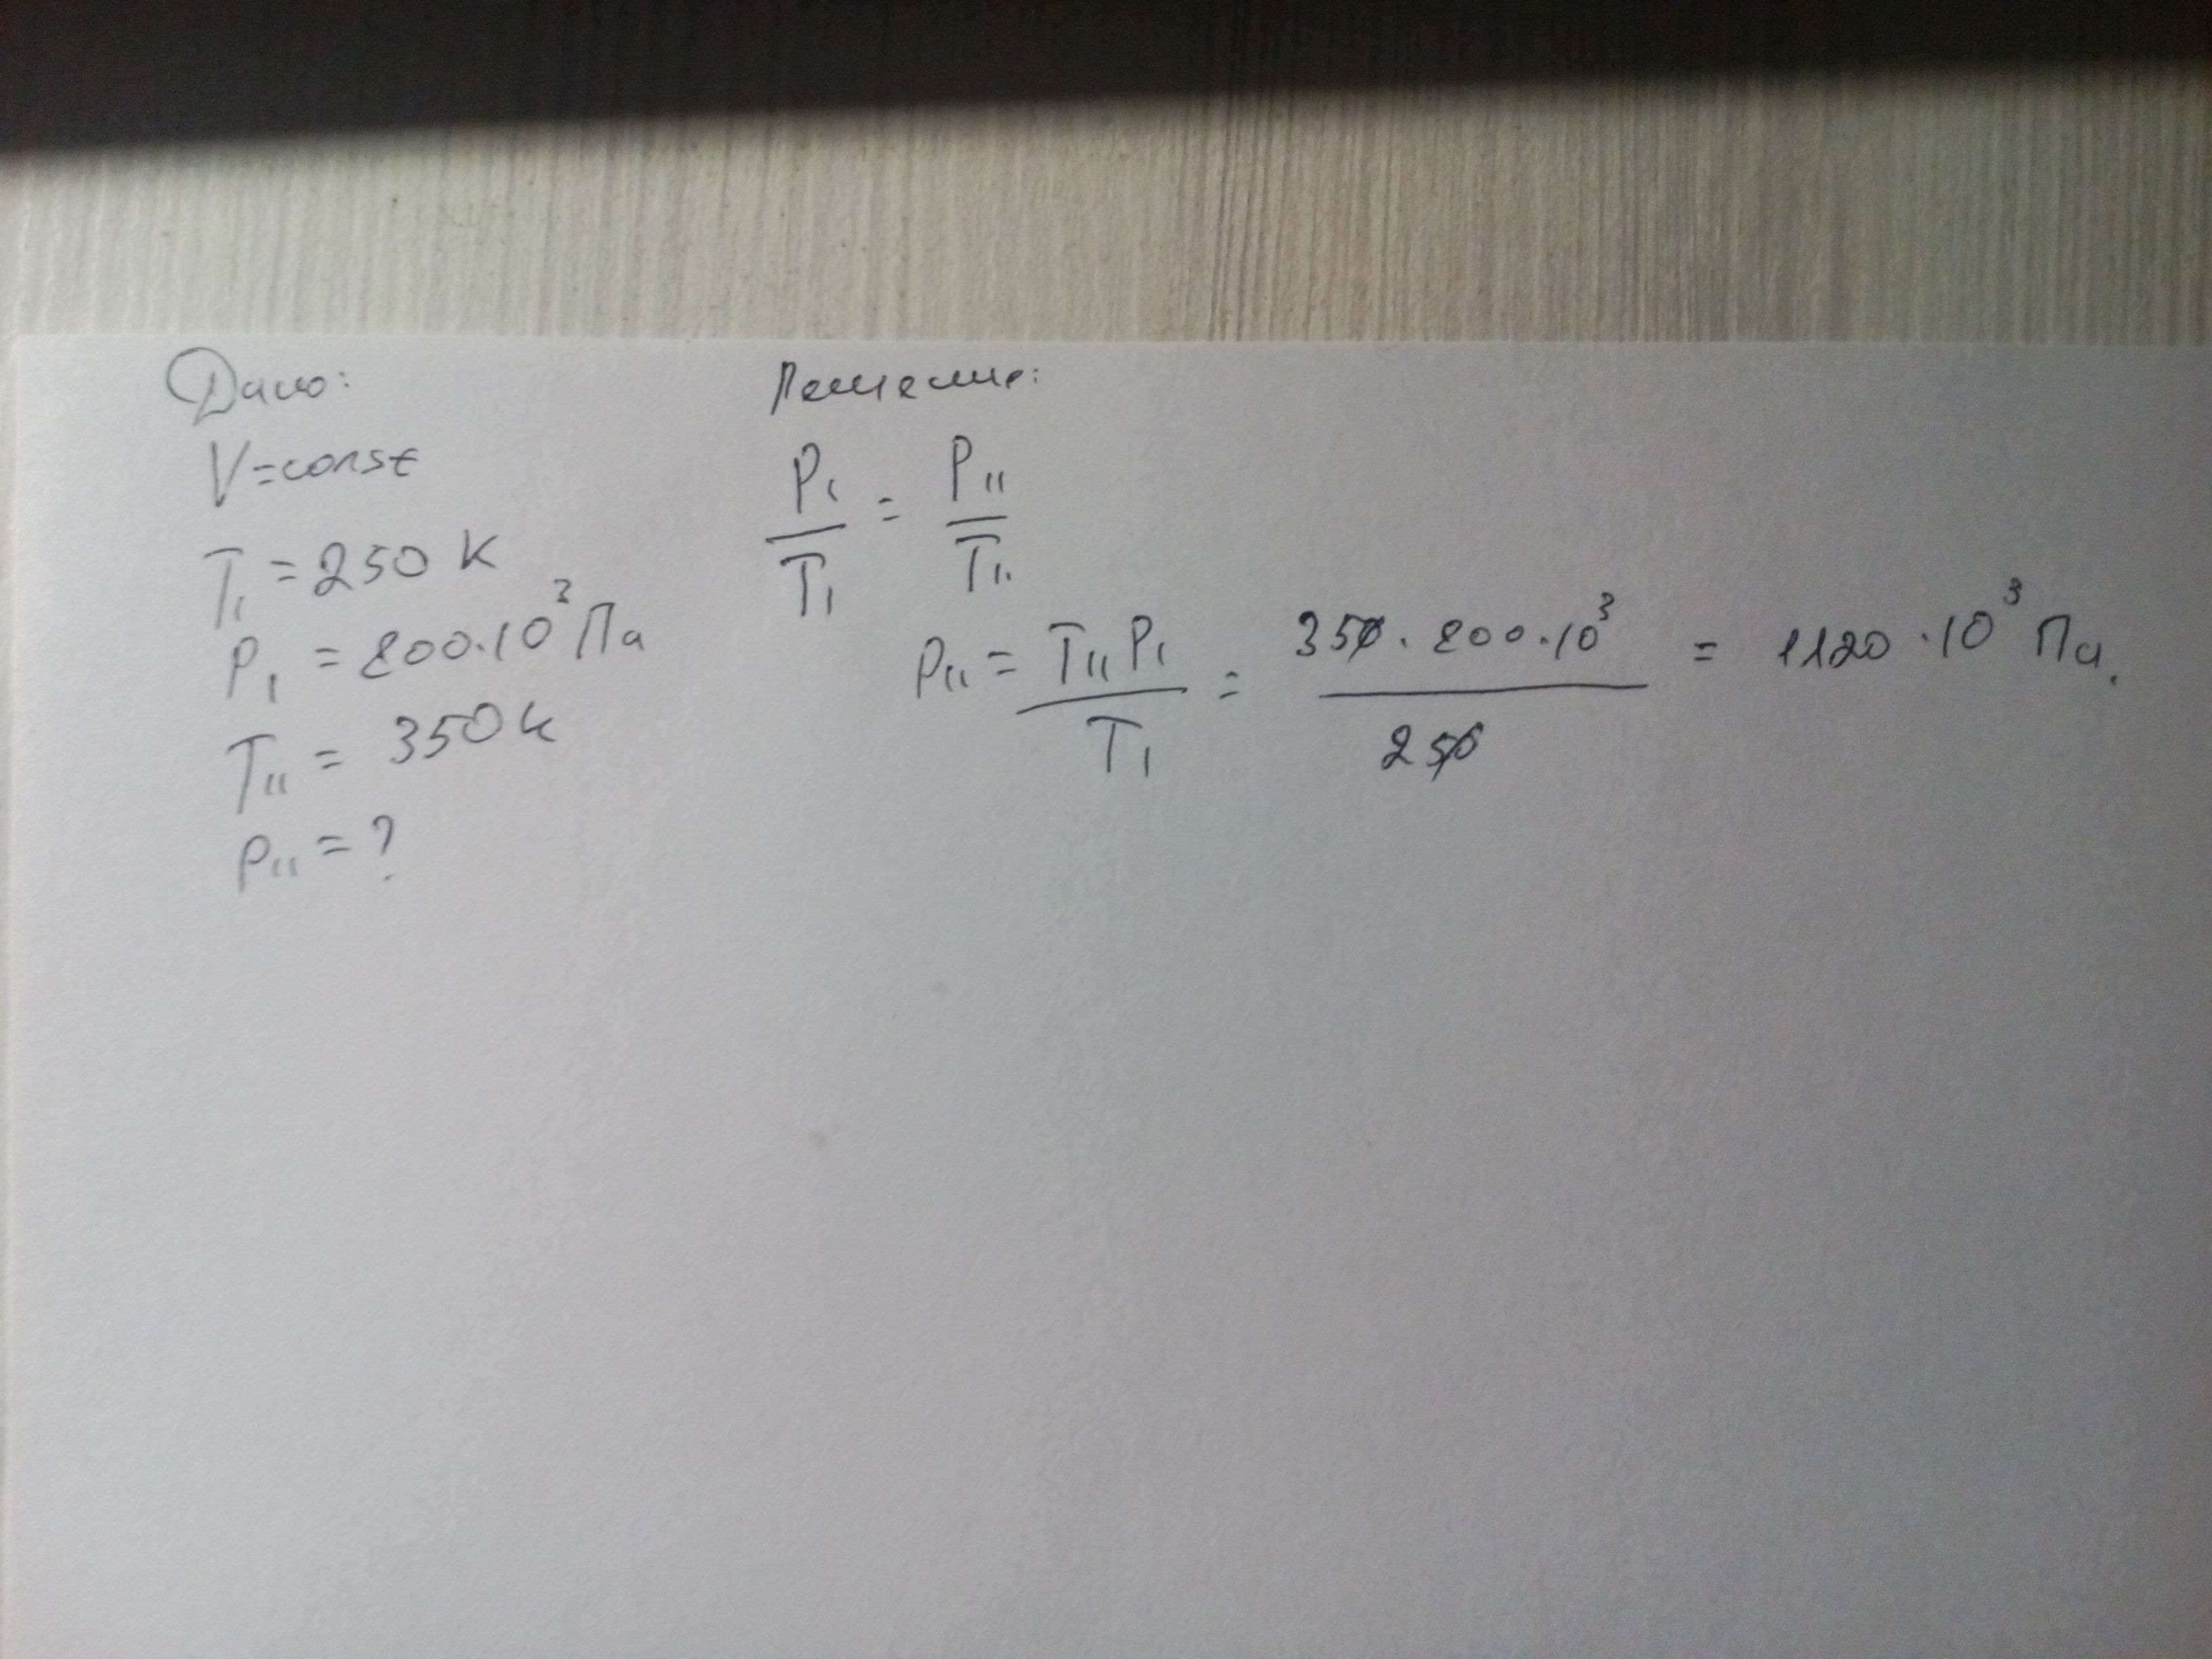 Дано:
V=const
T₁ = 250 K
P₁ = 800·10³ Па
T₁₁ = 350 K
P₁₁ = ?
Решение:
P₁/T₁ = P₁₁/T₁₁
P₁₁ = T₁₁P₁/T₁ = 350·800·10³/250 = 1120·10³ Па.